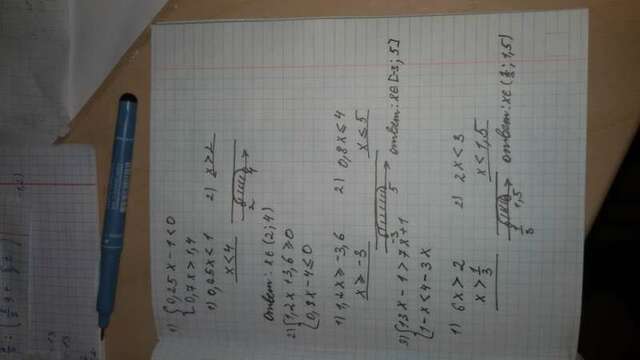 1) { 0,25x - 1 < 0
{ 0,7x > 1,4
1) 0,25x < 1 2) x > 2
x < 4
2 4
ответ: x ∈ (2; 4)
2) { 1,2x + 3,6 ≥ 0
{ 0,8x - 4 ≤ 0
1) 1,2x ≥ -3,6 2) 0,8x ≤ 4
x ≥ -3 x ≤ 5
-3 5 ответ: x ∈ [-3; 5]
3) { 13x - 1 > 7x + 1
{ 1 - x < 4 - 3x
1) 6x > 2 2) 2x < 3
x > 1/3 x < 1,5
1/3 1,5 ответ: x ∈ (1/3; 1,5)